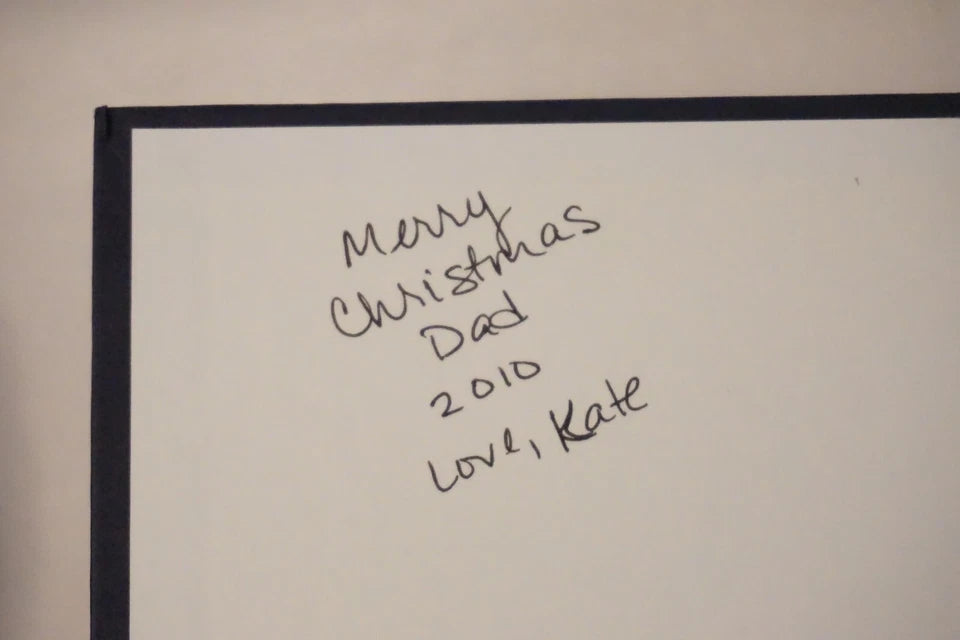 Merry
Christmas
Dad
2010
Love, Kate